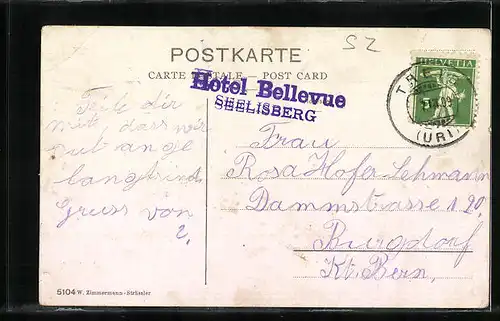 SZ
POSTKARTE
CARTE POSTALE - POST CARD
Hotel Bellevue
SEELISBERG
HELVETIA
(URI)
Teile dir
mit dass wir
gut ange
langt sind
Gruss von
Frau
Rosa Hofer-Lehmann
Dammstrasse 120,
Burgdorf
Kt. Bern,
5104 W. Zimmermann-Strässler